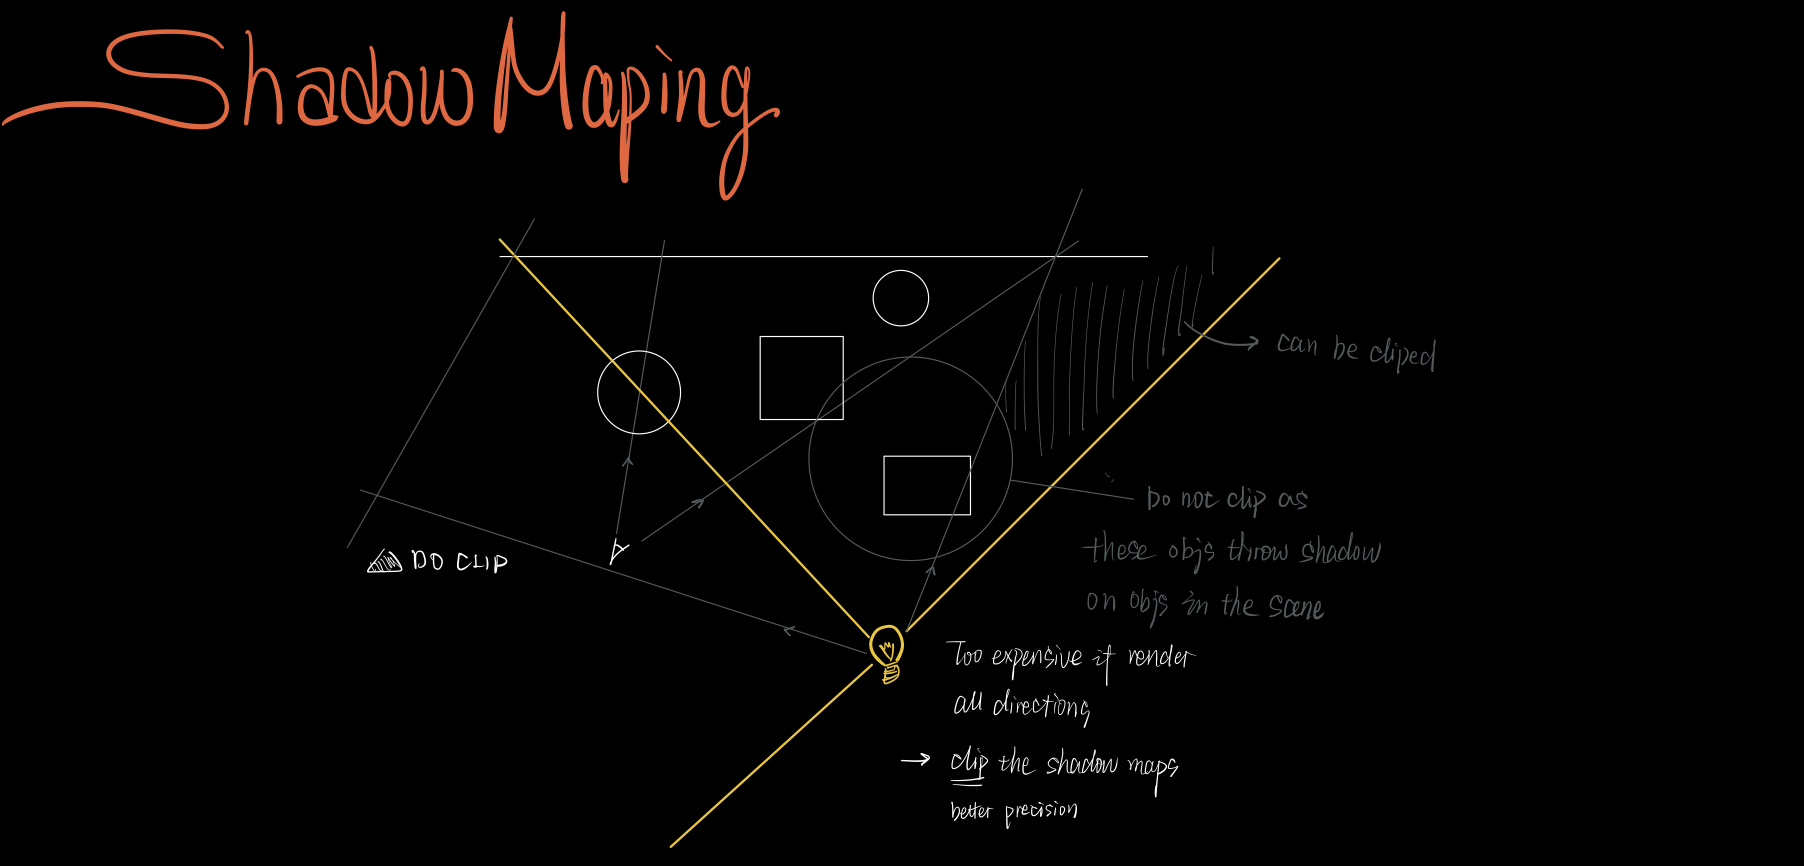 Shadow Maping
can be cliped
Do not clip as
these objs throw shadow
on objs in the scene
DO CLIP
Too expensive if render
all directions
→ clip the shadow maps
better precision